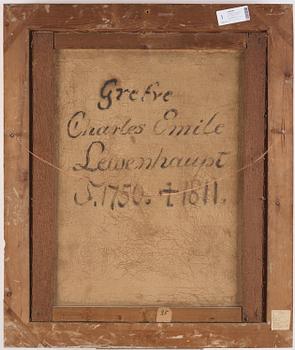 Grefve
Charles Emile
Lewenhaupt
F. 1750. † 1811.